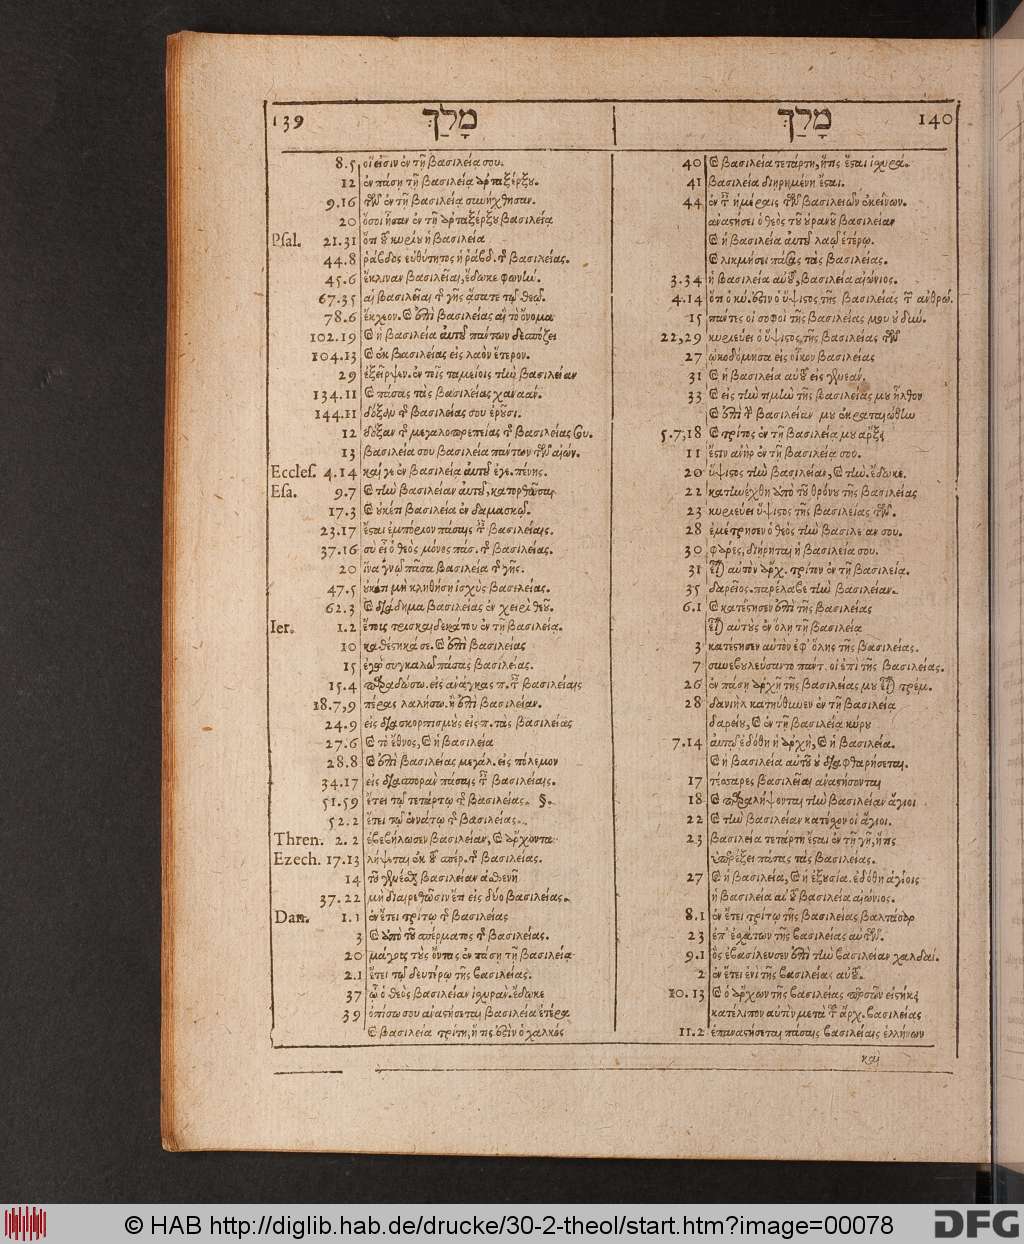 139 מָלַךְ
8.5 οἵ εἰσιν ἐν τῇ βασιλεία σου.
12 ἐν πάσῃ τῇ βασιλεία ἀρταξέρξου.
9.16 τῶν ἐν τῇ βασιλεία συνήχθησαν.
20 ὅσοι ἦσαν ἐν τῇ ἀρταξέρξου βασιλεία
Psal. 21.31 ὅτι τοῦ κυρίου ἡ βασιλεία
44.8 ῥάβδος εὐθύτητος ἡ ῥάβδ. τῆς βασιλείας.
45.6 ἔκλιναν βασιλεῖαι, ἔδωκε φωνὴν.
67.35 αἱ βασιλεῖαι τῆς γῆς ᾄσατε τῷ θεῷ.
78.6 ἔκχεον. καὶ ἐπὶ βασιλείας αἳ τὸ ὄνομα
102.19 καὶ ἡ βασιλεία αὐτοῦ πάντων δεσπόζει
104.13 καὶ ἐκ βασιλείας εἰς λαὸν ἕτερον.
29 ἐξεῖρψεν. ἐν τοῖς ταμείοις τῶν βασιλείαν
134.11 καὶ πάσας τὰς βασιλείας χαναάν.
144.11 δόξαν τῆς βασιλείας σου ἐροῦσι.
12 δόξαν τῆς μεγαλοπρεπείας τῆς βασιλείας σου.
13 βασιλεία σου βασιλεία πάντων τῶν αἰών.
Eccles. 4.14 καί γε ἐν βασιλεία αὐτοῦ ἐγε. πένης.
Esa. 9.7 καὶ τὴν βασιλείαν αὐτοῦ, κατορθῶσαι
17.3 καὶ οὐκέτι βασιλεία ἐν δαμασκῷ.
23.17 ἔσται ἐμπόριον πάσαις ταῖς βασιλείαις.
37.16 σὺ εἶ ὁ θεὸς μόνος πάσ. τῆς βασιλείας.
20 ἵνα γνῷ πᾶσα βασιλεία τῆς γῆς.
47.5 οὐκέτι μὴ κληθήσῃ ἰσχὺς βασιλείας.
62.3 καὶ διάδημα βασιλείας ἐν χειρὶ θεοῦ.
Ier. 1.2 ἔτους τρισκαιδεκάτου ἐν τῇ βασιλεία.
10 καθέστηκά σε. καὶ ἐπὶ βασιλείας
15 ἐγὼ συγκαλῶ πάσας βασιλείας.
15.4 παραδώσω. εἰς ἀνάγκας π. ταῖς βασιλείαις
18.7,9 πέρας λαλήσω. ἢ ἐπὶ βασιλείαν.
24.9 εἰς διασκορπισμοὺς εἰς π. τὰς βασιλείας
27.6 καὶ τὸ ἔθνος, καὶ ἡ βασιλεία
28.8 καὶ ἐπὶ βασιλείας μεγάλ. εἰς πόλεμον
34.17 εἰς διασπορὰν πάσαις ταῖς βασιλείαις.
51.59 ἔτει τῷ τετάρτῳ τῆς βασιλείας. §.
52.2 ἔτει τῷ ἐννάτῳ τῆς βασιλείας.
Thren. 2.2 ἐβεβήλωσεν βασιλείαν, καὶ ἄρχοντα
Ezech. 17.13 λήψεται ἐκ τοῦ σπέρ. τῆς βασιλείας.
14 τοῦ γενέσθαι βασιλείαν ἀσθενῆ
37.22 μὴ διαιρεθῶσιν ἔτι εἰς δύο βασιλείας.
Dan. 1.1 ἐν ἔτει τρίτῳ τῆς βασιλείας
3 καὶ ἀπὸ τοῦ σπέρματος τῆς βασιλείας.
20 μάγους τοὺς ὄντας ἐν πάσῃ τῇ βασιλεία
2.1 ἔτει τῷ δευτέρῳ τῆς βασιλείας.
37 ᾧ ὁ θεὸς βασιλείαν ἰσχυρὰν. ἔδωκε
39 ὀπίσω σου ἀναστήσεται βασιλεία ἑτέρα
καὶ βασιλεία τρίτη, ἥ τις ἐστὶν ὁ χαλκός
מָלַךְ 140
40 καὶ βασιλεία τετάρτη, ἥτις ἔσται ἰσχυρά.
41 βασιλεία διῃρημένη ἔσται.
44 ἐν ταῖς ἡμέραις τῶν βασιλειῶν ἐκείνων.
ἀναστήσει ὁ θεὸς τοῦ οὐρανοῦ βασιλείαν
καὶ ἡ βασιλεία αὐτοῦ λαῷ ἑτέρῳ.
καὶ λικμήσει πάσας τὰς βασιλείας.
3.34 ἡ βασιλεία αὐτοῦ, βασιλεία αἰώνιος.
4.14 ὅτι ὁ κύ. ἐστὶν ὁ ὕψιστος τῆς βασιλείας τῶν ἀνθρώ.
15 πάντες οἱ σοφοὶ τῆς βασιλείας μου οὐ δύ.
22,29 κυριεύει ὁ ὕψιστος τῆς βασιλείας τῶν
27 ᾠκοδόμησα εἰς οἶκον βασιλείας
31 καὶ ἡ βασιλεία αὐτοῦ εἰς γενεάν.
33 καὶ εἰς τὴν τιμὴν τῆς βασιλείας μου ἦλθον
καὶ ἐπὶ τὴν βασιλείαν μου ἐκραταιώθην
5.7,18 καὶ τρίτος ἐν τῇ βασιλεία μου ἄρξει
11 ἔστιν ἀνὴρ ἐν τῇ βασιλεία σου.
20 ὕψιστος τὴν βασιλείαν, καὶ τιμ. ἔδωκε.
22 κατηνέχθη ἀπὸ τοῦ θρόνου τῆς βασιλείας
23 κυριεύει ὕψιστος τῆς βασιλείας τῶν.
28 ἐμέτρησεν ὁ θεὸς τὴν βασιλείαν σου.
30 φάρες, διῄρηται ἡ βασιλεία σου.
31 εἶ αὐτὸν ἄρχ. τρίτον ἐν τῇ βασιλεία.
35 δαρεῖος. παρέλαβε τὴν βασιλείαν.
6.1 καὶ κατέστησεν ἐπὶ τῆς βασιλείας
εἶ αὐτοὺς ἐν ὅλῃ τῇ βασιλεία
3 κατέστησεν αὐτὸν ἐφ᾽ ὅλης τῆς βασιλείας.
7 συνεβουλεύσαντο παντ. οἱ ἐπὶ τῆς βασιλείας.
26 ἐν πάσῃ ἀρχῇ τῆς βασιλείας μου εἶ τρέμ.
28 δανιὴλ κατηύθυνεν ἐν τῇ βασιλεία
δαρείου, καὶ ἐν τῇ βασιλεία κύρου
7.14 αὐτῷ ἐδόθη ἡ ἀρχὴ, καὶ ἡ βασιλεία.
καὶ ἡ βασιλεία αὐτοῦ οὐ διαφθαρήσεται.
17 τέσσαρες βασιλεῖαι ἀναστήσονται
18 καὶ παραλήψονται τὴν βασιλείαν ἅγιοι
22 καὶ τὴν βασιλείαν κατέσχον οἱ ἅγιοι.
23 βασιλεία τετάρτη ἔσται ἐν τῇ γῇ, ἥτις
ὑπερέξει πάσας τὰς βασιλείας.
27 καὶ ἡ βασιλεία, καὶ ἡ ἐξουσία. ἐδόθη ἁγίοις
ἡ βασιλεία αὐτοῦ βασιλεία αἰώνιος.
8.1 ἐν ἔτει τρίτῳ τῆς βασιλείας βαλτάσαρ
23 ἐπ᾽ ἐσχάτων τῆς βασιλείας αὐτῶν.
9.1 ὃς ἐβασίλευσεν ἐπὶ τὴν βασιλείαν χαλδαί.
2 ἐν ἔτει ἑνὶ τῆς βασιλείας αὐτοῦ.
10.13 καὶ ὁ ἄρχων τῆς βασιλείας περσῶν εἱστήκει
κατέλιπον αὐτὸν μετὰ τοῦ ἄρχ. βασιλείας
11.2 ἐπαναστήσεται πάσαις βασιλείαις ἑλλήνων
καὶ
© HAB http://diglib.hab.de/drucke/30-2-theol/start.htm?image=00078
DFG